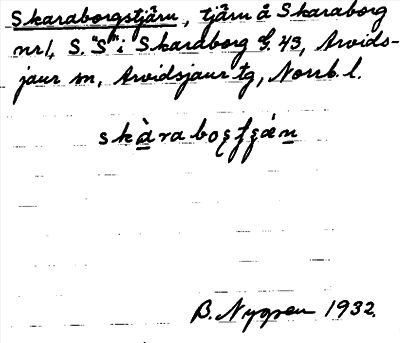 Skaraborgstjärn, tjärn å Skaraborg
nr 1, S. "S" i Skaraborg G. 43, Arvids-
jaur sn, Arvidsjaur tg, Norrb. l.
B. Nygren 1932.